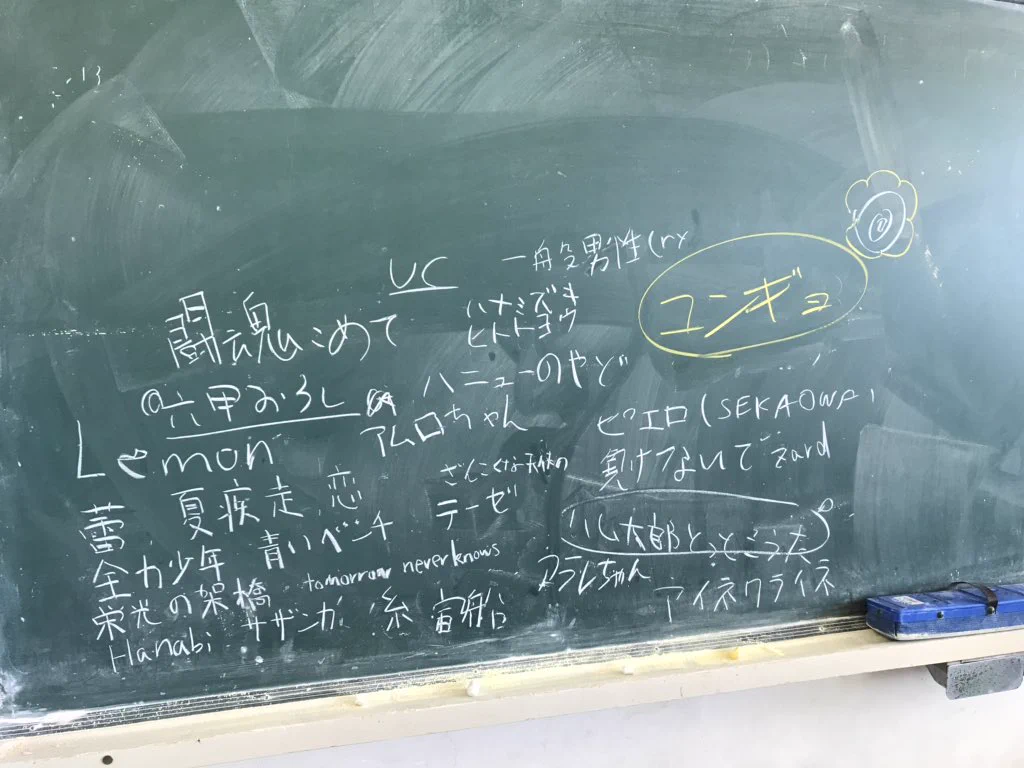 UC
一般男性(ry
ユンギュ
ハナミズキ
ヒトトヨウ
闘魂こめて
ハニューのやど
六甲おろし
アムロちゃん
ピエロ(SEKAOWA)
Lemon
ざんこくな天使の
テーゼ
負けないで zard
蕾 夏疾走 恋
全力少年 青いベンチ
ハム太郎とっとこうた
栄光の架橋 tomorrow never knows
アラレちゃん
アイネクライネ
Hanabi サザンカ 糸 宙船